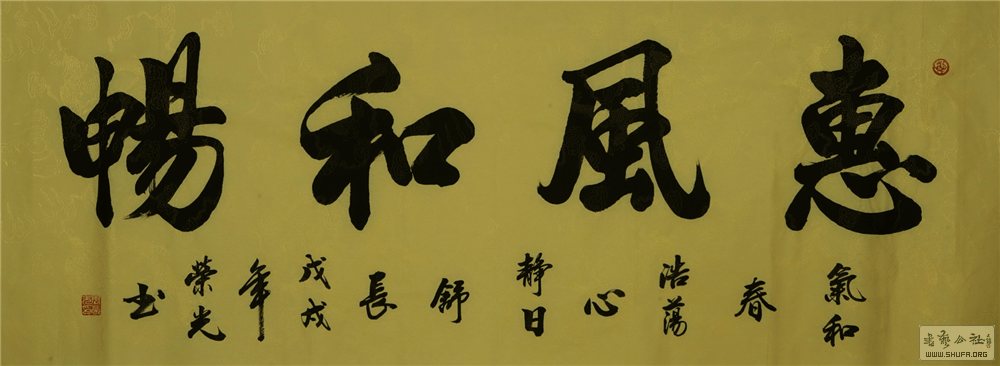 惠風和暢
氣和春浩蕩心静日舒長戊戌年榮光书
WWW.SHUFA.ORG